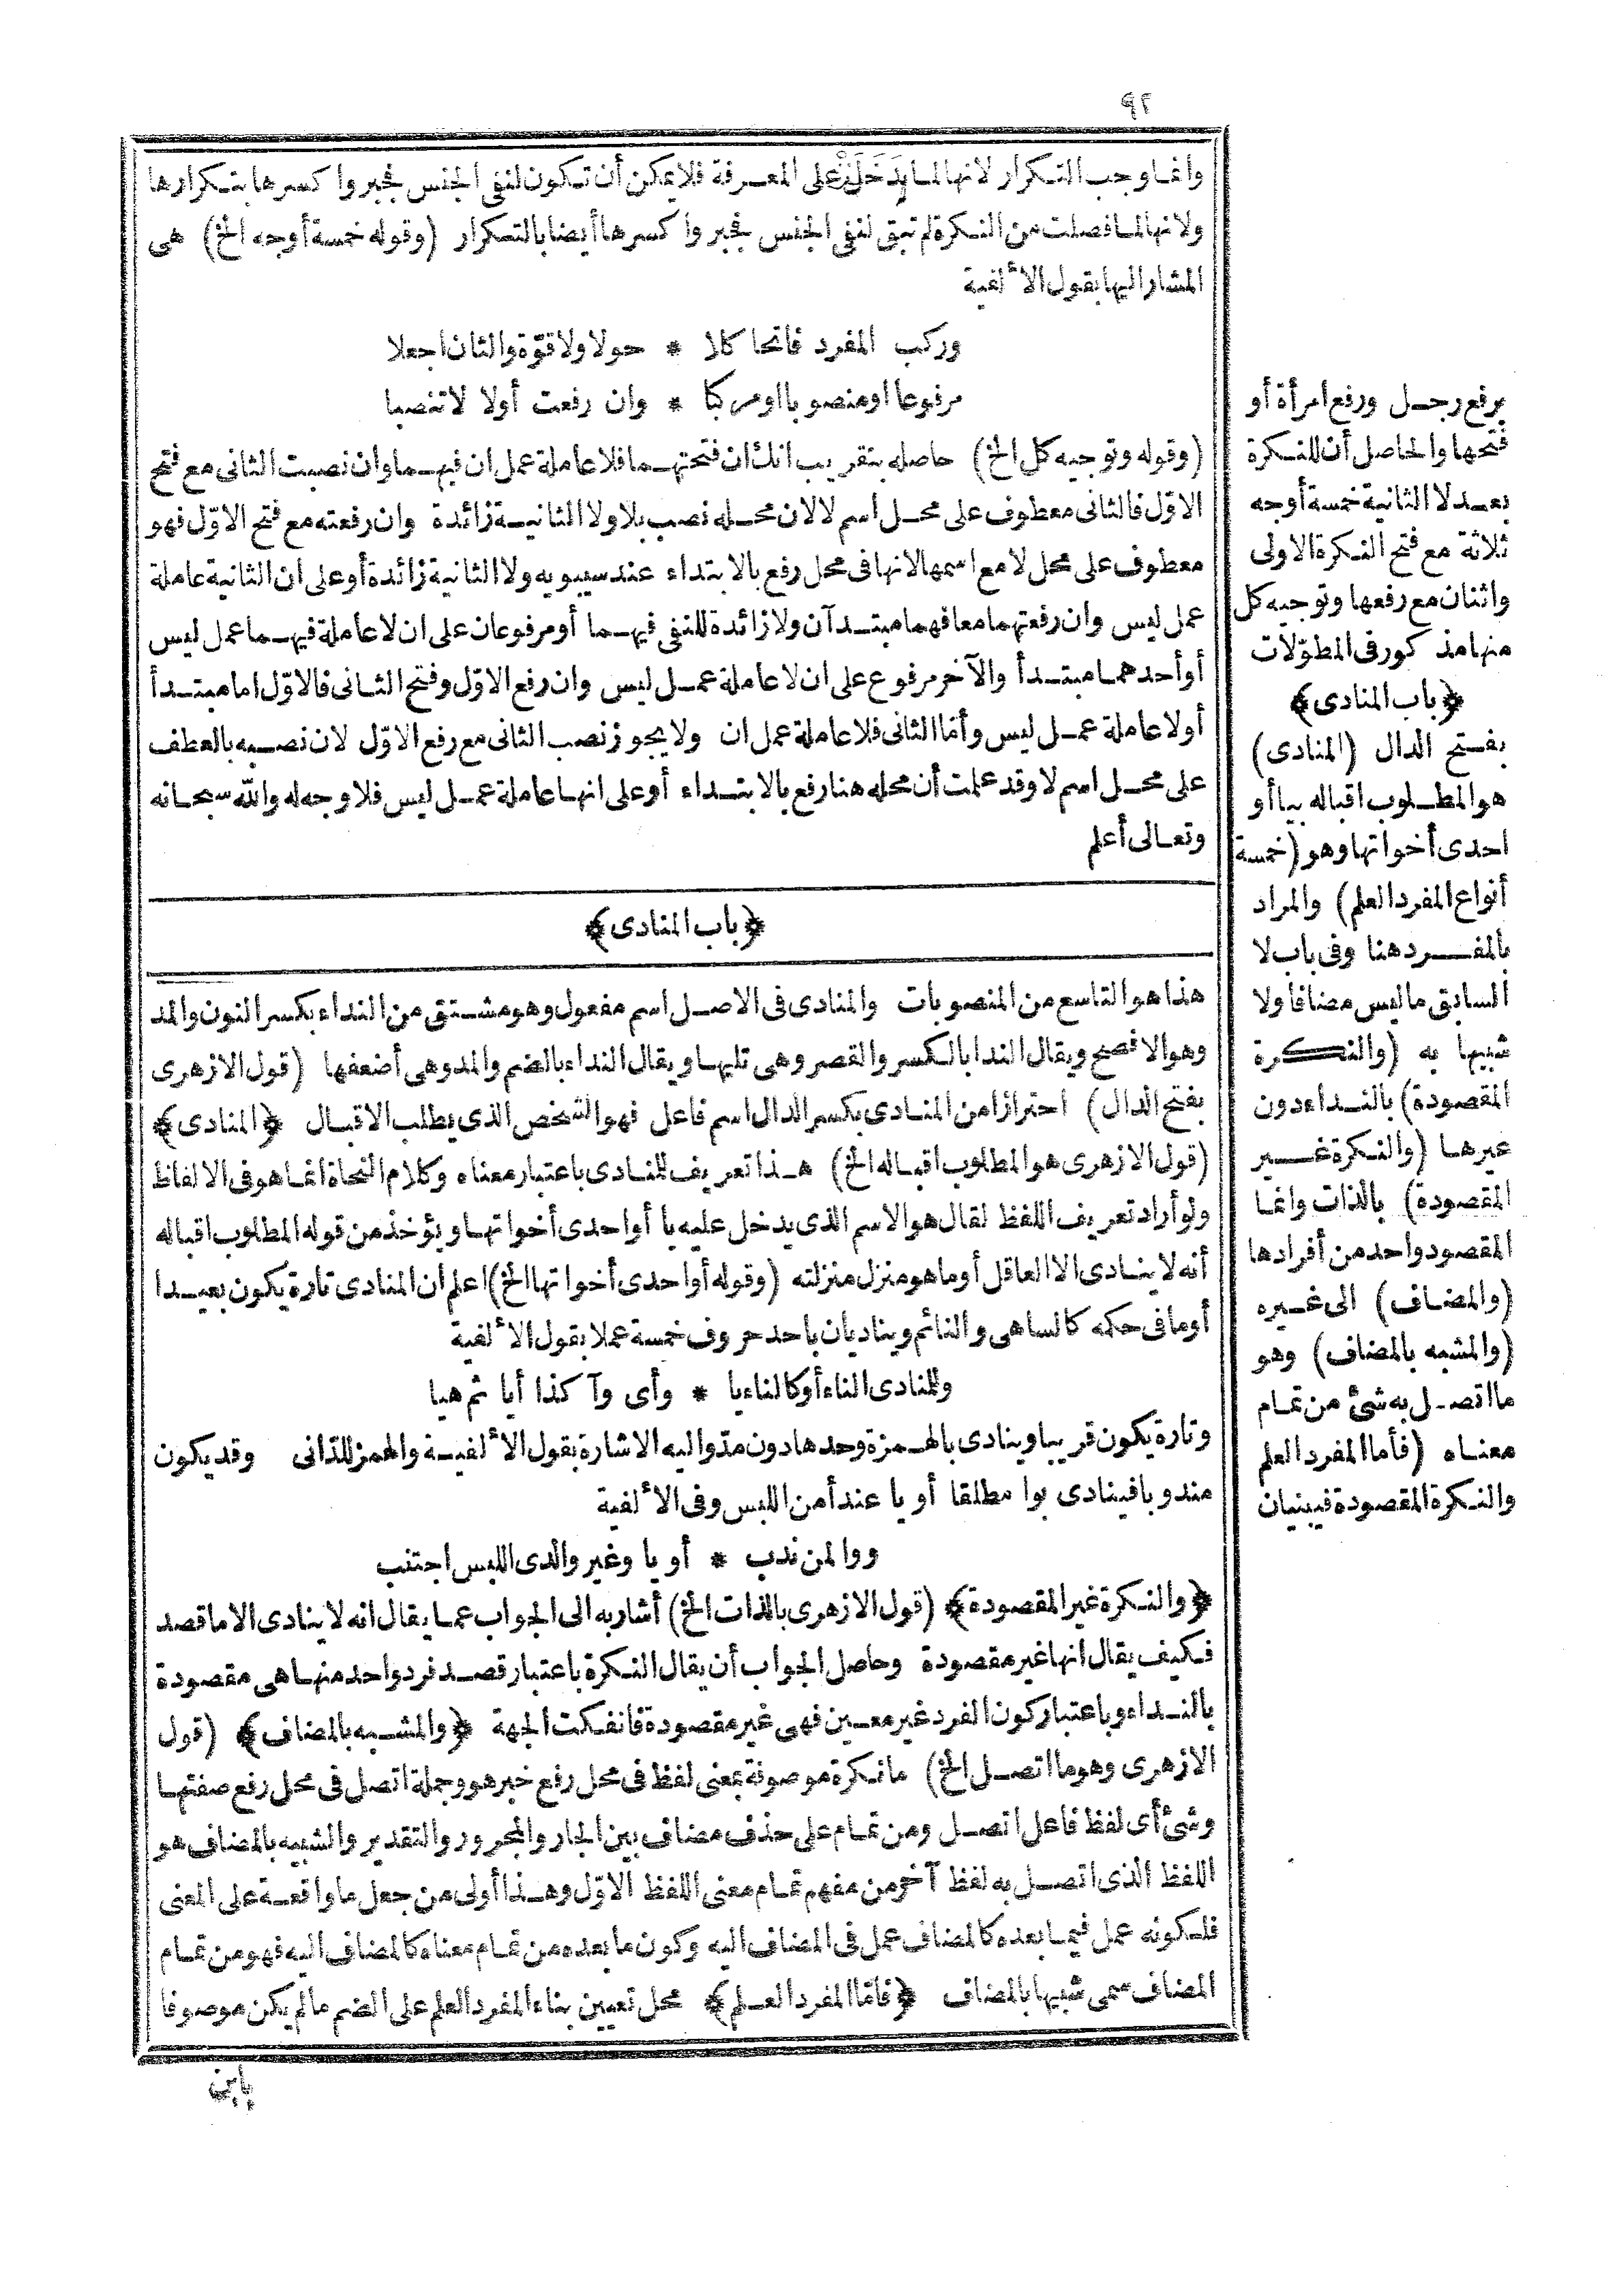 ٩٢
وانما وجب التكرار لانها لما دخلت على المعرفة فلا يمكن أن تكون لنفى الجنس فجبروا كسرها بتكرارها
ولانها لما فصلت من النكرة لم تبق لنفى الجنس فجبروا كسرها أيضا بالتكرار (وقوله خمسة أوجه الخ) هى
المشار اليها بقول الألفية
وركب المفرد فاتحا كلا * حول ولا قوّة والثان اجعلا
مرفوعا او منصوبا او مركبا * وان رفعت أولا لا تنصبا
(وقوله وتوجيه كل الخ) حاصله بتقريب انك ان فتحتهما فلا عاملة عمل ان فيهما وان نصبت الثانى مع فتح
الاوّل فالثانى معطوف على محل اسم لا لان محله نصب بلا ولا الثانية زائدة وان رفعته مع فتح الاوّل فهو
معطوف على محل لا مع اسمها لانها فى محل رفع بالابتداء عند سيبويه ولا الثانية زائدة أو على ان الثانية عاملة
عمل ليس وان رفعتهما معا فهما مبتدآن ولا زائدة للنفى فيهما أو مرفوعان على ان لا عاملة فيهما عمل ليس
أو أحدهما مبتدأ والآخر مرفوع على ان لا عاملة عمل ليس وان رفع الاوّل وفتح الثانى فالاوّل اما مبتدأ
أو لا عاملة عمل ليس وأمّا الثانى فلا عاملة عمل ان ولا يجوز نصب الثانى مع رفع الاوّل لان نصبه بالعطف
على محل اسم لا وقد علمت أن محله هنا رفع بالابتداء أو على انها عاملة عمل ليس فلا وجه له والله سبحانه
وتعالى أعلم
﴿باب المنادى﴾
هذا هو التاسع من المنصوبات والمنادى فى الاصل اسم مفعول وهو مشتق من النداء بكسر النون والمد
وهو الافصح ويقال الندا بالكسر والقصر وهى تليها ويقال النداء بالضم والمد وهى أضعفها (قول الازهرى
بفتح الدال) احترازا من المنادى بكسر الدال اسم فاعل فهو الشخص الذى يطلب الاقبال ﴿المنادى﴾
(قول الازهرى هو المطلوب اقباله الخ) هذا تعريف للمنادى باعتبار معناه وكلام النحاة انما هو فى الالفاظ
ولو أراد تعريف اللفظ لقال هو الاسم الذى يدخل عليه يا أو احدى أخواتها ويؤخذ من قوله المطلوب اقباله
أنه لا ينادى الا العاقل أو ما هو منزل منزلته (وقوله أو احدى أخواتها الخ) اعلم ان المنادى تارة يكون بعيدا
أو ما فى حكمه كالساهى والنائم ويناديان باحد حروف خمسة عملا بقول الألفية
وللمنادى الناء أو كالناء يا * وأى وآ كذا أيا ثم هيا
وتارة يكون قريبا وينادى بالهمزة وحدها دون مدّ واليه الاشارة بقول الألفية والهمز للدّانى وقد يكون
مندوبا فينادى بوا مطلقا أو يا عند أمن اللبس وفى الألفية
ووا لمن ندب * أو يا وغير وا لدى اللبس اجتنب
﴿والنكرة غير المقصودة﴾ (قول الازهرى بالذات الخ) أشار به الى الجواب عما يقال انه لا ينادى الا ما قصد
فكيف يقال انها غير مقصودة وحاصل الجواب أن يقال النكرة باعتبار قصد فرد واحد منها هى مقصودة
بالنداء وباعتبار كون الفرد غير معين فهى غير مقصودة فانفكت الجهة ﴿والمشبه بالمضاف﴾ (قول
الازهرى وهو ما اتصل الخ) ما نكرة موصوفة بمعنى لفظ فى محل رفع خبر هو وجملة اتصل فى محل رفع صفتها
وشئ أى لفظ فاعل اتصل ومن تمام على حذف مضاف بين الجار والمجرور والتقدير والشبيه بالمضاف هو
اللفظ الذى اتصل به لفظ آخر من مفهم تمام معنى اللفظ الاوّل وهذا أولى من جعل ما واقعة على المعنى
فلكونه عمل فيما بعده كالمضاف عمل فى المضاف اليه وكون ما بعده من تمام معناه كالمضاف اليه فهو من تمام
المضاف سمى شبيها بالمضاف ﴿فأمّا المفرد العلم﴾ محل تعيين بناء المفرد العلم على الضم ما لم يكن موصوفا
بابن
برفع رجل ورفع امرأة أو
فتحها والحاصل أن للنكرة
بعد لا الثانية خمسة أوجه
ثلاثة مع فتح النكرة الاولى
واثنان مع رفعها وتوجيه كل
منها مذكور فى المطوّلات
﴿باب المنادى﴾
بفتح الدال (المنادى)
هو المطلوب اقباله بيا أو
احدى أخواتها وهو (خمسة
أنواع المفرد العلم) والمراد
بالمفرد هنا وفى باب لا
السابق ما ليس مضافا ولا
شبيها به (والنكرة
المقصودة) بالنداء دون
غيرها (والنكرة غير
المقصودة) بالذات وانما
المقصود واحد من أفرادها
(والمضاف) الى غيره
(والمشبه بالمضاف) وهو
ما اتصل به شئ من تمام
معناه (فأما المفرد العلم
والنكرة المقصودة فيبنيان